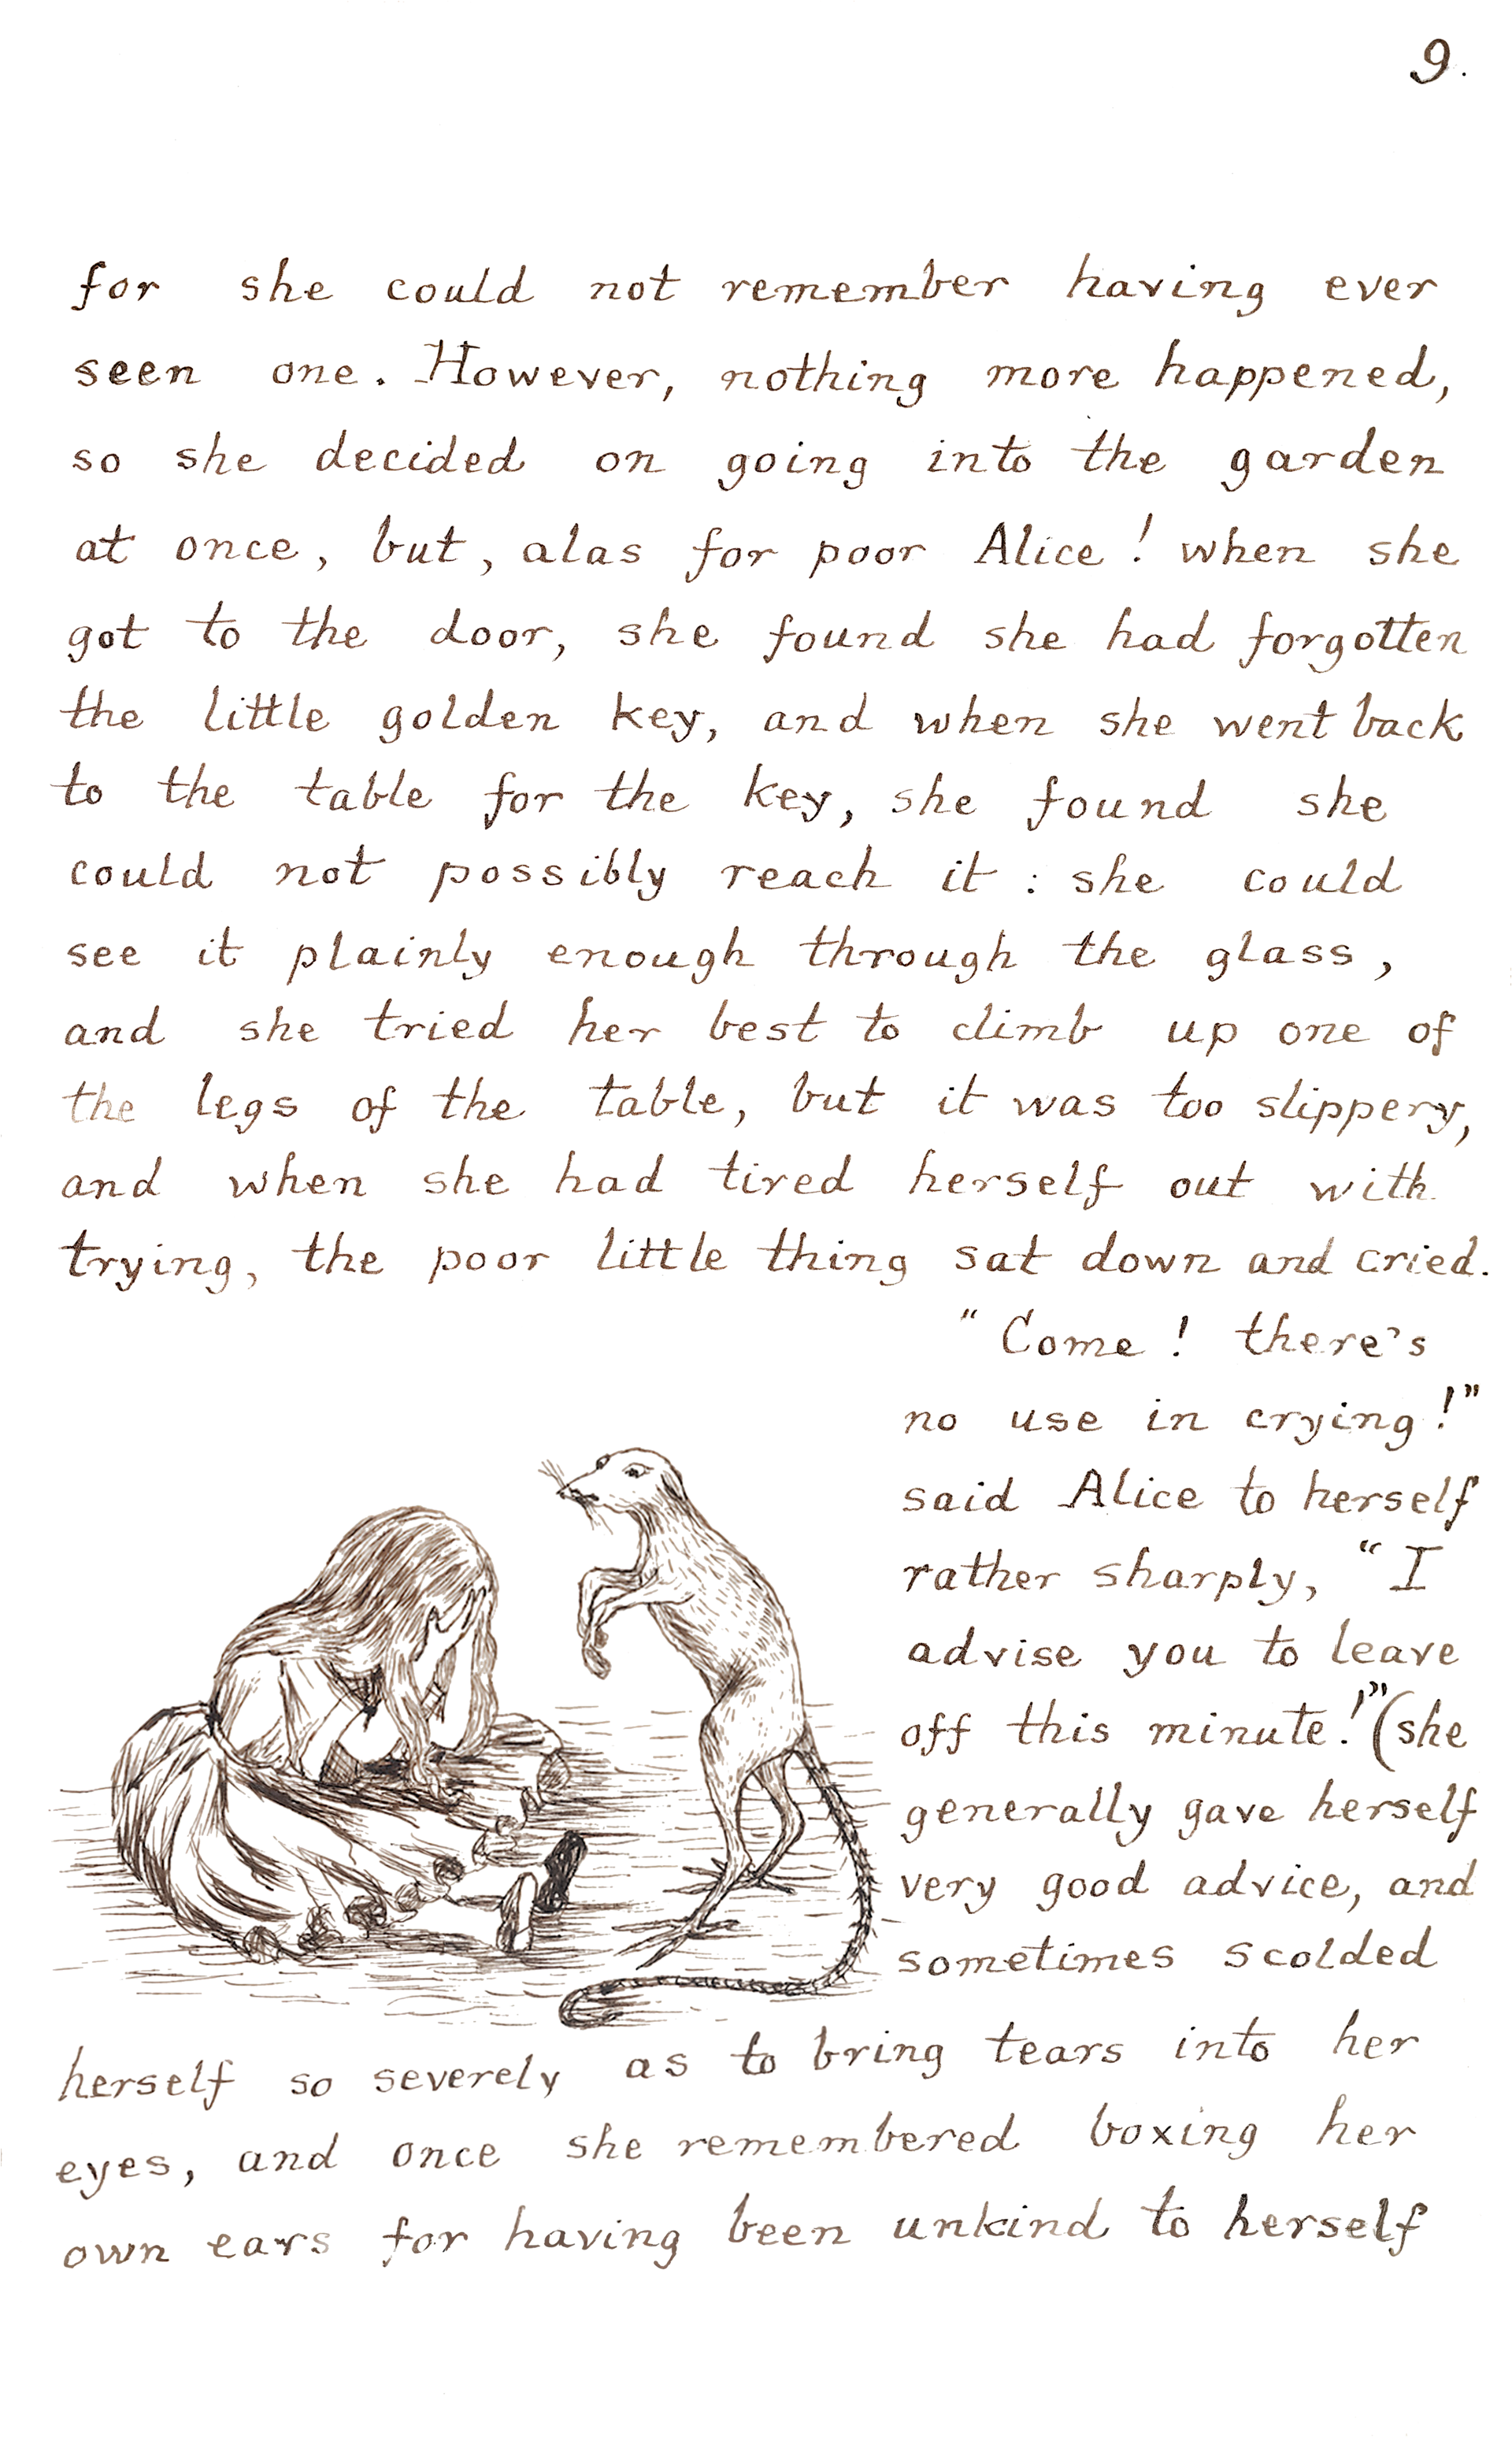 9.
for she could not remember having ever
seen one. However, nothing more happened,
so she decided on going into the garden
at once, but, alas for poor Alice! when she
got to the door, she found she had forgotten
the little golden key, and when she went back
to the table for the key, she found she
could not possibly reach it: she could
see it plainly enough through the glass,
and she tried her best to climb up one of
the legs of the table, but it was too slippery,
and when she had tired herself out with
trying, the poor little thing sat down and cried.
"Come! there's
no use in crying!"
said Alice to herself
rather sharply, "I
advise you to leave
off this minute!" (she
generally gave herself
very good advice, and
sometimes scolded
herself so severely as to bring tears into her
eyes, and once she remembered boxing her
own ears for having been unkind to herself